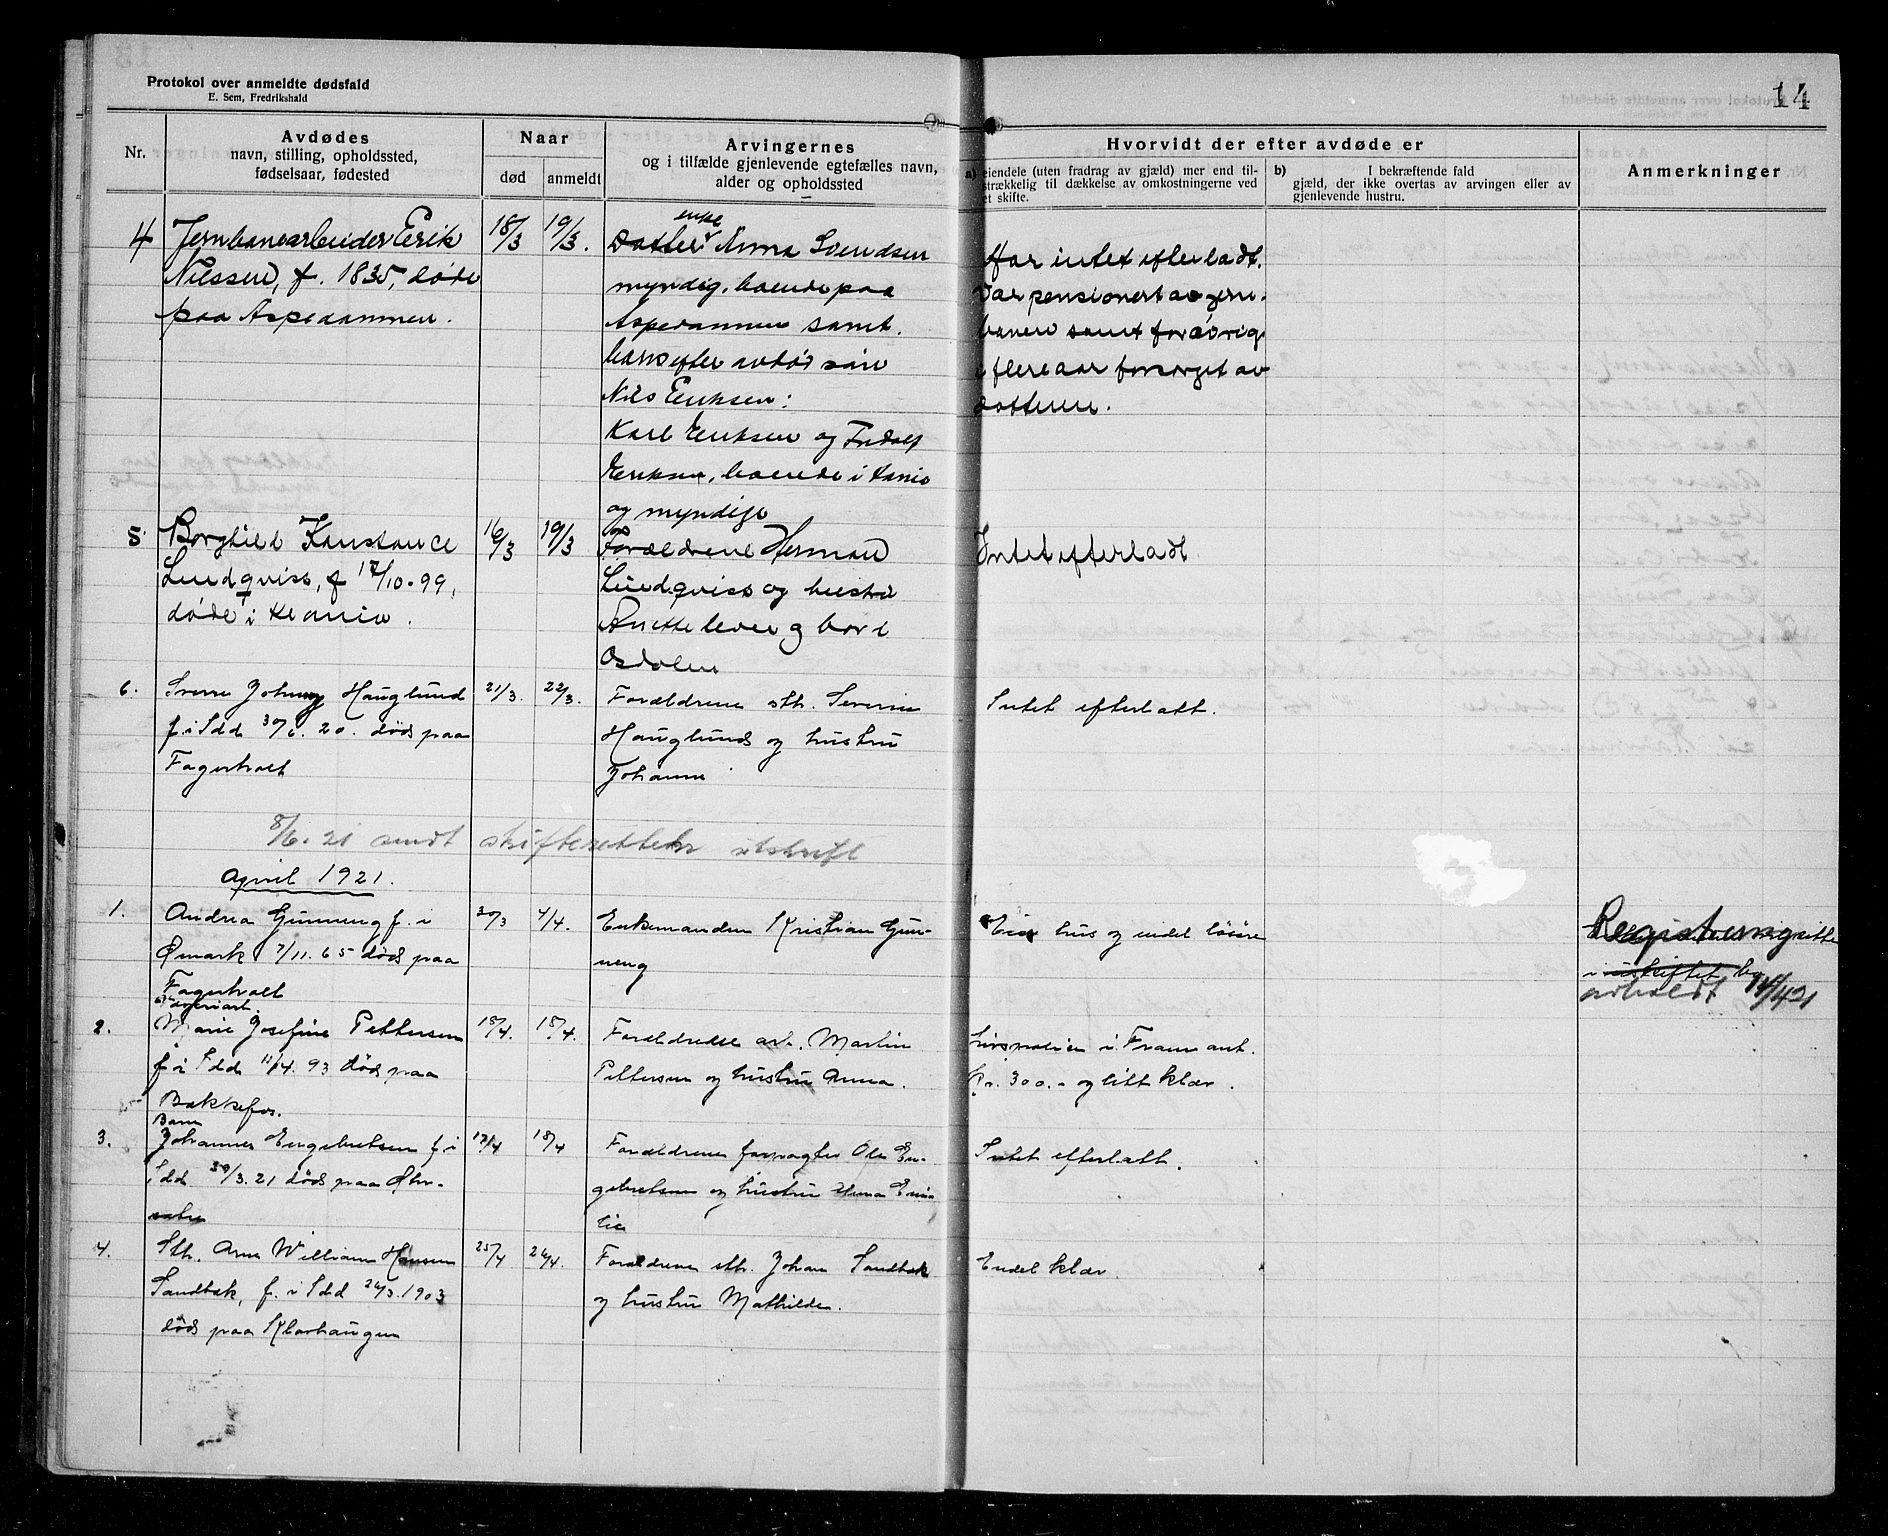 Protokol over anmeldte dødsfald
E. Sem, Fredrikshald
14
Nr.
Avdødes
navn, stilling, opholdssted,
fødselsaar, fødested
Naar
død
anmeldt
Arvingernes
og i tilfælde gjenlevende egtefælles navn,
alder og opholdssted
Hvorvidt der efter avdøde er
a) eiendele (uten fradrag av gjæld) mer end til-
strækkelig til dækkelse av omkostningerne ved
et skifte.
b) I bekræftende fald
gjæld, der ikke overtas av arvingen eller av
gjenlevende hustru.
Anmerkninger
4
Jernbanearbeider Erik
Nilssen, f. 1835, døde
paa Aspedammen.
18/3
19/3.
enke
Datter Anna Svendsen
myndig, boende paa
Aspedammen samt.
barn efter avdød søn
Nils Eriksen:
Karl Eriksen og Fridolf
Eriksen, boende i
og myndige
Har intet efterladt.
Var pensionert av jern-
banen samt forøvrig
i flere aar forsørget av
datteren.
5
Borghild Konstance
Lundqvist, f 17/10-99,
døde i Kr.ania.
16/3
19/3
Forældrene Herman
Lundqvist og hustru
Anette lever og bor i
Osdalen
Intet efterladt.
6.
Sverre Johnny Hauglund
f. i Idd 30/6. 20. død paa
Fagerholt
21/3.
22/3.
Forældrene sth. Severin
Hauglund og hustru
Johanne
Intet efterlatt.
8/6. 21 sendt skifteretten utskrift
April 1921.
1.
Andrea Gunneng f. i
Ømark 7/11. 65 død paa
Fagerholt
30/3
4/4.
Enkemanden Kristian Gun-
neng
Eier hus og endel løsøre
Registrering
i uskiftet bo
avholdt 14/4 21
2.
Væveriarb.
Marie Josefine Pettersen
f. i Idd 11/4. 93 død paa
Bakkefos.
18/4.
18/4.
Forældrene arb. Martin
Pettersen og hustru Anna.
Livspolice i Fram ant.
Kr. 300.- og litt klær.
3.
Barn
Johannes Engebretsen f. i
Idd 30/3. 21 død paa
17/4
18/4
Forældrene forpagter Ole En-
gebretsen og hustru Anna Emi-
lie
Intet efterlatt.
4.
Sth. Arne William Hansen
Sandbæk, f. i Idd 26/3. 1903
død paa Klorhaugen
25/4
26/4.
Forældrene sth. Johan Sandbæk
og hustru Mathilde.
Endel klær.